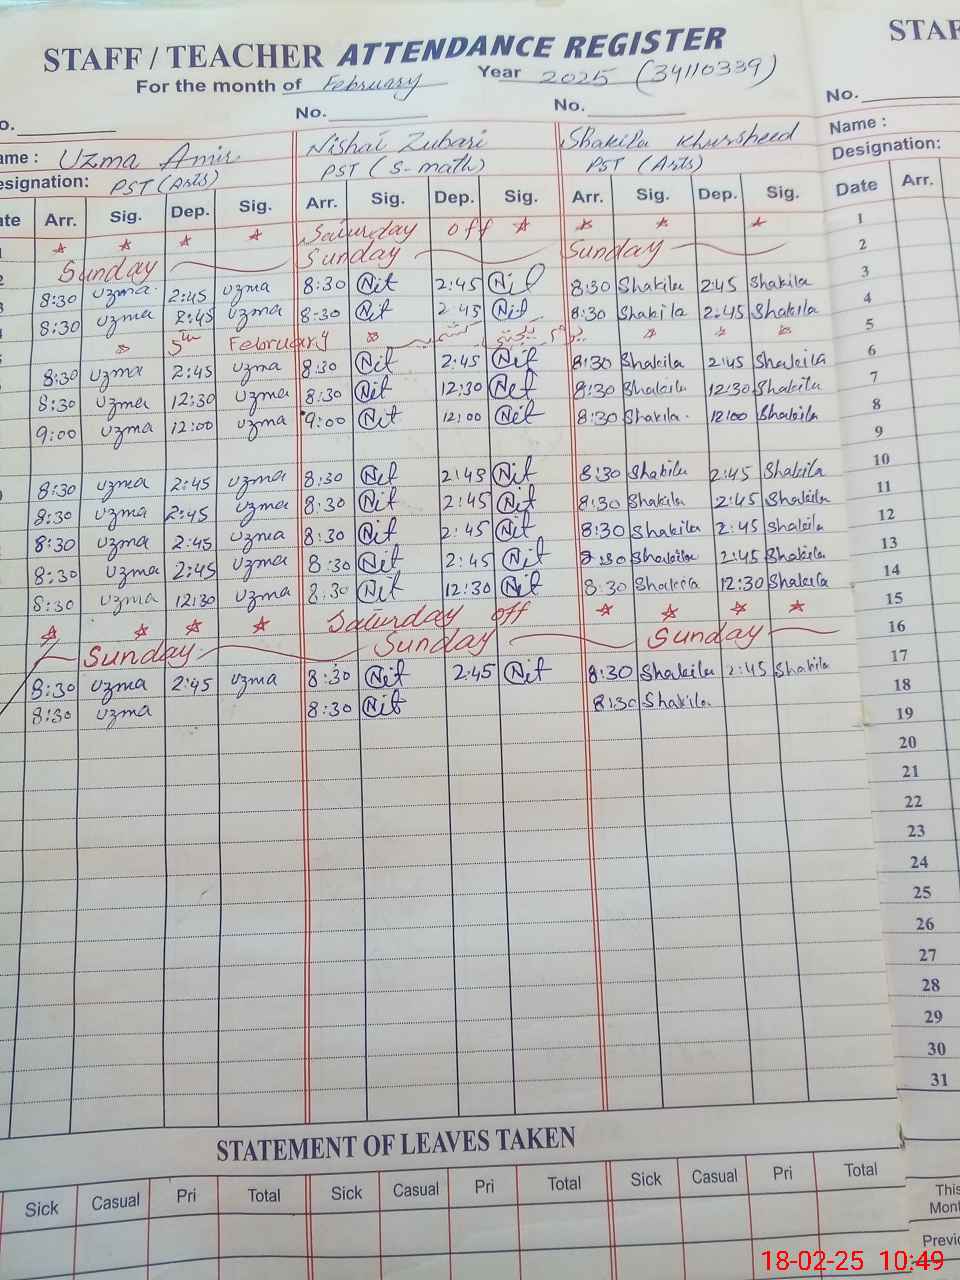 STAFF / TEACHER ATTENDANCE REGISTER
For the month of February Year 2025 (34110339)
No. No.
Uzma Amir Nishat Zubari Shakila Khursheed
Designation: PST (Arts) PST (S-math) PST (Arts)
Arr. Sig. Dep. Sig. Arr. Sig. Dep. Sig. Arr. Sig. Dep. Sig.
Saturday off
Sunday Sunday Sunday
8:30 Uzma 2:45 Uzma 8:30 Nit 2:45 Nit 8:30 Shakila 2:45 Shakila
8:30 Uzma 2:45 Uzma 8:30 Nit 2:45 Nit 8:30 Shakila 2:45 Shakila
5th February یوم یکجہتی کشمیر
8:30 Uzma 2:45 Uzma 8:30 Nit 2:45 Nit 8:30 Shakila 2:45 Shakila
8:30 Uzma 12:30 Uzma 8:30 Nit 12:30 Nit 8:30 Shakila 12:30 Shakila
9:00 Uzma 12:00 Uzma 9:00 Nit 12:00 Nit 8:30 Shakila 12:00 Shakila
8:30 Uzma 2:45 Uzma 8:30 Nit 2:45 Nit 8:30 Shakila 2:45 Shakila
8:30 Uzma 2:45 Uzma 8:30 Nit 2:45 Nit 8:30 Shakila 2:45 Shakila
8:30 Uzma 2:45 Uzma 8:30 Nit 2:45 Nit 8:30 Shakila 2:45 Shakila
8:30 Uzma 2:45 Uzma 8:30 Nit 2:45 Nit 8:30 Shakila 2:45 Shakila
8:30 Uzma 12:30 Uzma 8:30 Nit 12:30 Nit 8:30 Shakila 12:30 Shakila
Saturday off
Sunday Sunday Sunday
8:30 Uzma 2:45 Uzma 8:30 Nit 2:45 Nit 8:30 Shakila 2:45 Shakila
8:30 Uzma 8:30 Nit 8:30 Shakila
STATEMENT OF LEAVES TAKEN
Sick Casual Pri Total Sick Casual Pri Total Sick Casual Pri Total
No.
Name :
Designation:
Date Arr.
1
2
3
4
5
6
7
8
9
10
11
12
13
14
15
16
17
18
19
20
21
22
23
24
25
26
27
28
29
30
31
This
18-02-25 10:49